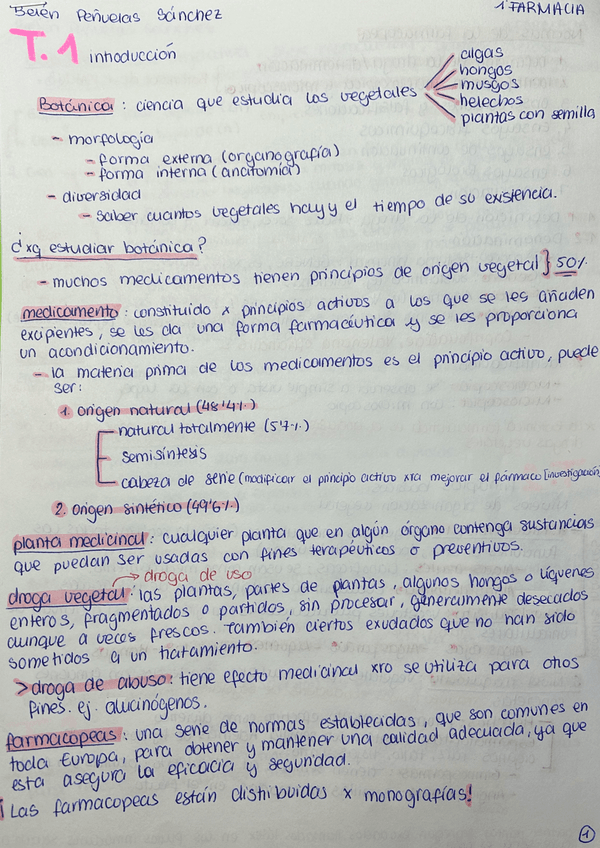 Belén Peñuelas Sánchez
1ºFARMACIA
T.1 introducción
Botánica: ciencia que estudia los vegetales
algas
hongos
musgos
helechos
plantas con semilla
- morfología
- forma externa (organografía)
- forma interna (anatomía)
- diversidad
- saber cuantos vegetales hay y el tiempo de su existencia.
¿xq estudiar botánica?
- muchos medicamentos tienen principios de origen vegetal } 50%
medicamento: constituido x principios activos a los que se les añaden
excipientes, se les da una forma farmacéutica y se les proporciona
un acondicionamiento.
- la materia prima de los medicamentos es el principio activo, puede
ser:
1. origen natural (48'4%)
natural totalmente (5'7%)
semisíntesis
cabeza de serie (modificar el principio activo xra mejorar el fármaco [investigación]
2. origen sintético (49'6%)
planta medicinal: cualquier planta que en algún órgano contenga sustancias
que puedan ser usadas con fines terapéuticos o preventivos.
→ droga de uso
droga vegetal: las plantas, partes de plantas, algunos hongos o líquenes
enteros, fragmentados o partidos, sin procesar, generalmente desecados
aunque a veces frescos. También ciertos exudados que no han sido
sometidos a un tratamiento.
> droga de abuso: tiene efecto medicinal xro se utiliza para otros
fines. ej. alucinógenos.
farmacopeas: una serie de normas establecidas, que son comunes en
toda Europa, para obtener y mantener una calidad adecuada, ya que
esta asegura la eficacia y seguridad.
¡Las farmacopeas están distribuidas x monografías!
1